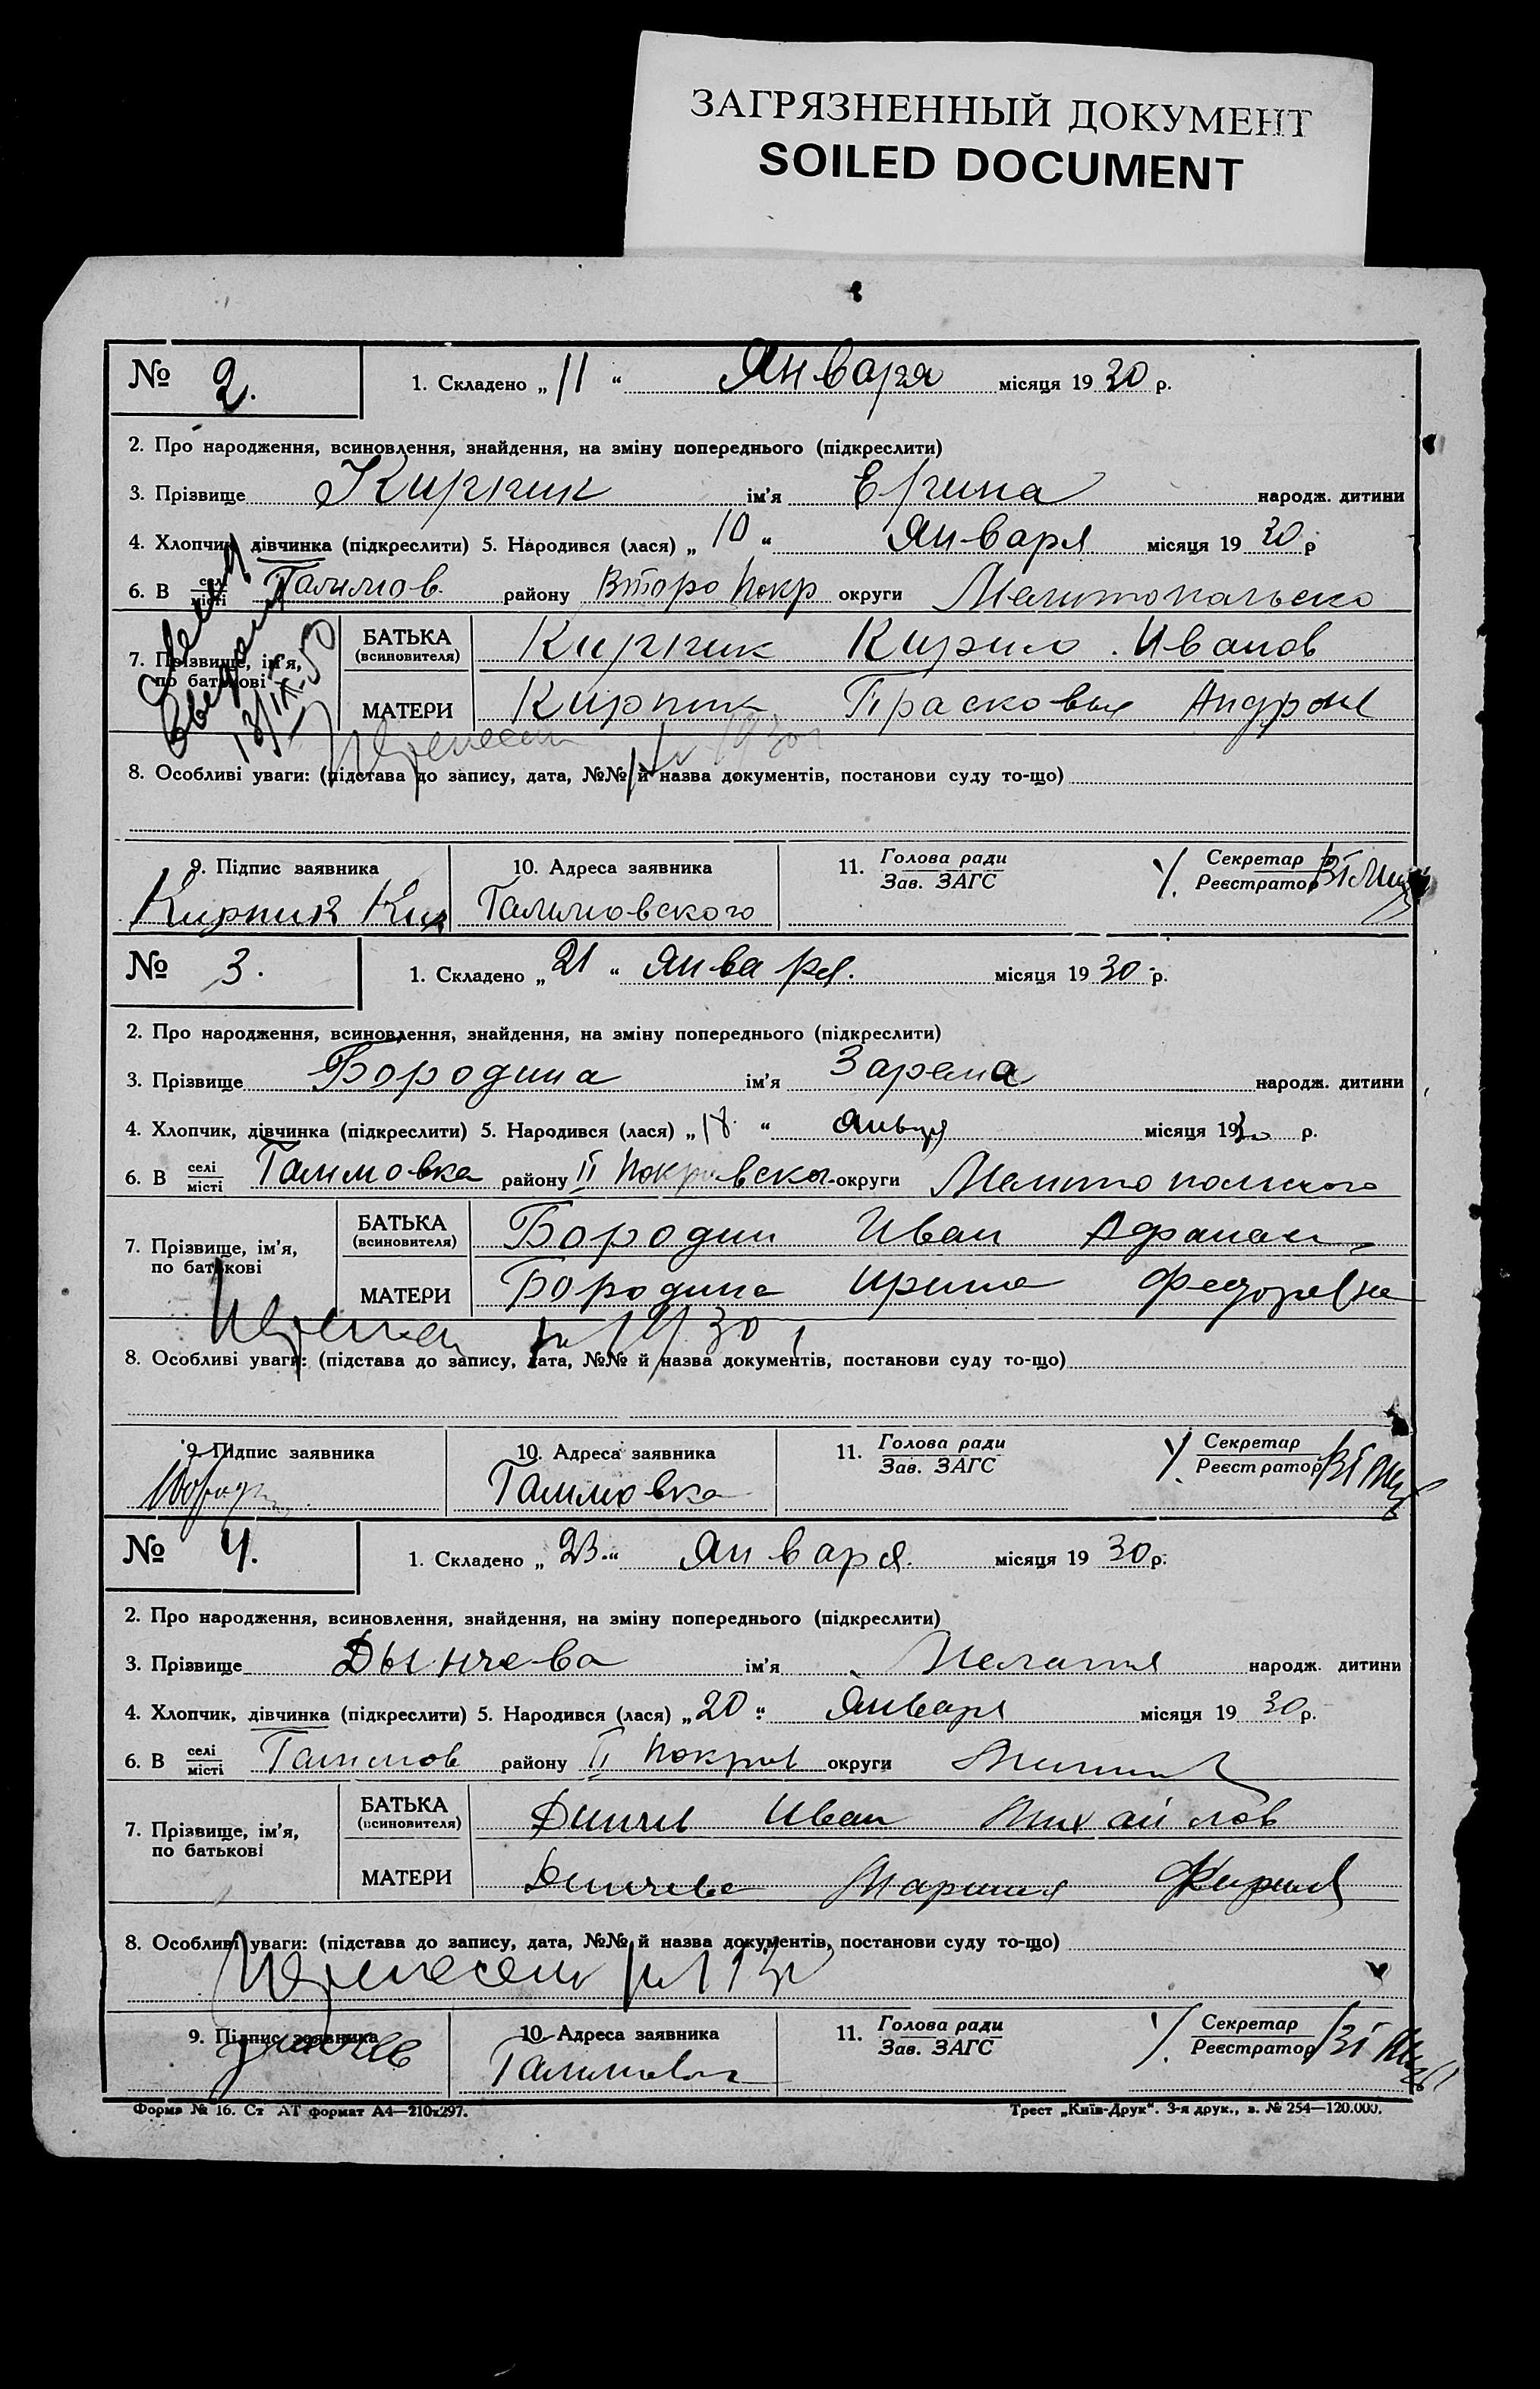 ЗАГРЯЗНЕННЫЙ ДОКУМЕНТ
SOILED DOCUMENT
№ 2. 1. Складено „ 11 “ Января місяця 19 30 р.
2. Про народження, всиновлення, знайдення, на зміну попереднього (підкреслити)
3. Прізвище Кирпик ім'я Ерина народж. дитини
4. Хлопчик, дівчинка (підкреслити) 5. Народився (лася) „ 10 “ Января місяця 19 30 р
6. В селі місті Галимов. району Второ Покр округи Мелитопольско
7. Прізвище, ім'я, по батькові
БАТЬКА (всиновителя) Кирпик Кирило Иванов
МАТЕРИ Кирпик Прасковья Андрон
8. Особливі уваги: (підстава до запису, дата, №№ й назва документів, постанови суду то-що)
9. Підпис заявника 10. Адреса заявника 11. Голова ради Зав. ЗАГС Секретар Реєстратор
Кирпик Кир Галимовского
№ 3. 1. Складено „ 21 “ января. місяця 19 30 р.
2. Про народження, всиновлення, знайдення, на зміну попереднього (підкреслити)
3. Прізвище Бородина ім'я Зарема народж. дитини
4. Хлопчик, дівчинка (підкреслити) 5. Народився (лася) „ 18 “ января місяця 19 30 р.
6. В селі місті Галимовка району II Покровског округи Мелитопольского
7. Прізвище, ім'я, по батькові
БАТЬКА (всиновителя) Бородин Иван Афанас
МАТЕРИ Бородина Ирина Федоровна
8. Особливі уваги: (підстава до запису, дата, №№ й назва документів, постанови суду то-що)
9. Підпис заявника 10. Адреса заявника 11. Голова ради Зав. ЗАГС Секретар Реєстратор
Галимовка
№ 4. 1. Складено „ 23 “ января. місяця 19 30 р.
2. Про народження, всиновлення, знайдення, на зміну попереднього (підкреслити)
3. Прізвище Дынчева ім'я Мелания народж. дитини
4. Хлопчик, дівчинка (підкреслити) 5. Народився (лася) „ 20 “ Января місяця 19 30 р.
6. В селі місті Галимов району II Покров округи
7. Прізвище, ім'я, по батькові
БАТЬКА (всиновителя) Динчев Иван Михайлов
МАТЕРИ Динчева Мария Кирил
8. Особливі уваги: (підстава до запису, дата, №№ й назва документів, постанови суду то-що)
9. Підпис заявника 10. Адреса заявника 11. Голова ради Зав. ЗАГС Секретар Реєстратор
Форма № 16. Ст АТ формат А4—210х297. Трест „Київ-Друк“. 3-я друк., з. № 254—120.000.